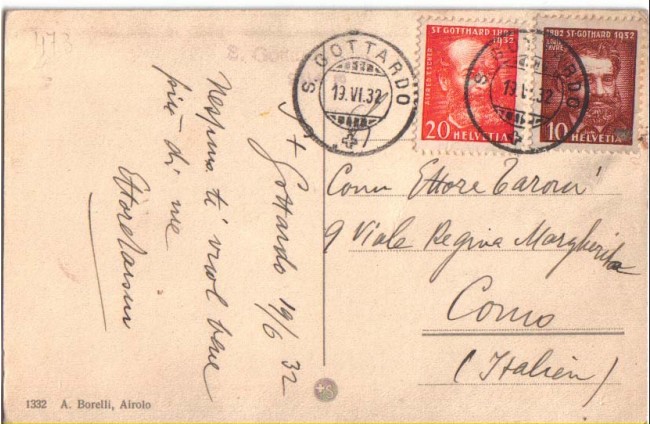 1173
S. GOTTARDO
19.VI.32
ST GOTTHARD
1932
ALFRED ESCHER
20 HELVETIA
1882 ST-GOTTHARD 1932
10 HELVETIA
S. GOTTARDO
19.VI.32
St Gottardo 19/6 32
Nessuno ti vuol bene
più di me
Ettore
Ettore
9 Viale Regina Margherita
Como
(Italien)
1332 A. Borelli, Airolo